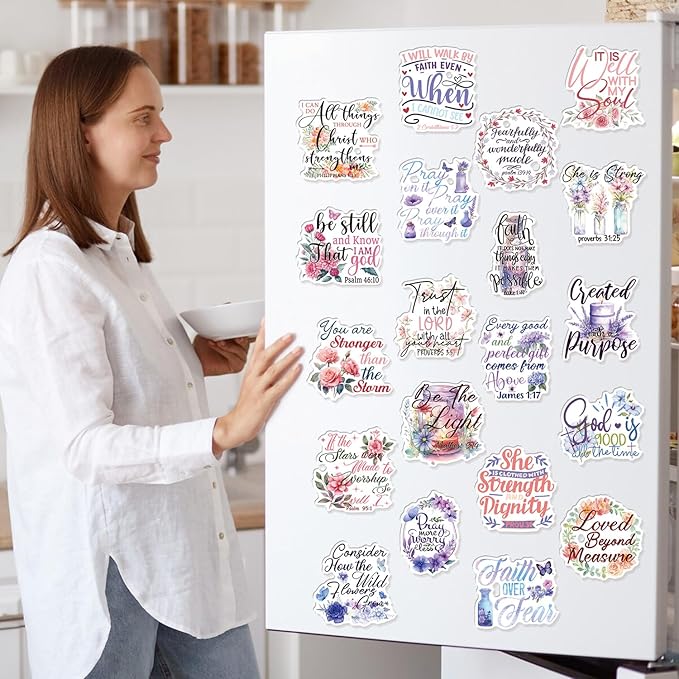 I CAN DO
All things
THROUGH
Christ WHO
strengthens
me
PHILIPPIANS 4:13
be still
and Know
That I AM
god
Psalm 46:10
You are
Stronger
than
the
Storm
If the
Stars were
Made to
worship So
will I
Psalm 95:1
Consider
How the
Wild
Flowers
Grow
I WILL WALK BY
FAITH EVEN
When
I CANNOT SEE
2 Corinthians 5:7
Pray
on it
Pray
over it
Pray
through it
Trust
in the
LORD
with all
your heart
PROVERBS 3:5
Be The
Light
Pray
more
Worry
less
Fearfully
and
wonderfully
made
psalm 139:14
faith
IT DOES NOT MAKE
THINGS EASY
IT MAKES THEM
Possible
Luke 1:37
Every good
and
perfect gift
comes from
Above
James 1:17
She
IS CLOTHED WITH
Strength
AND
Dignity
Faith
OVER
Fear
IT IS
Well
WITH
MY
Soul
She is Strong
proverbs 31:25
Created
with a
Purpose
God is
GOOD
all the time
Loved
Beyond
Measure